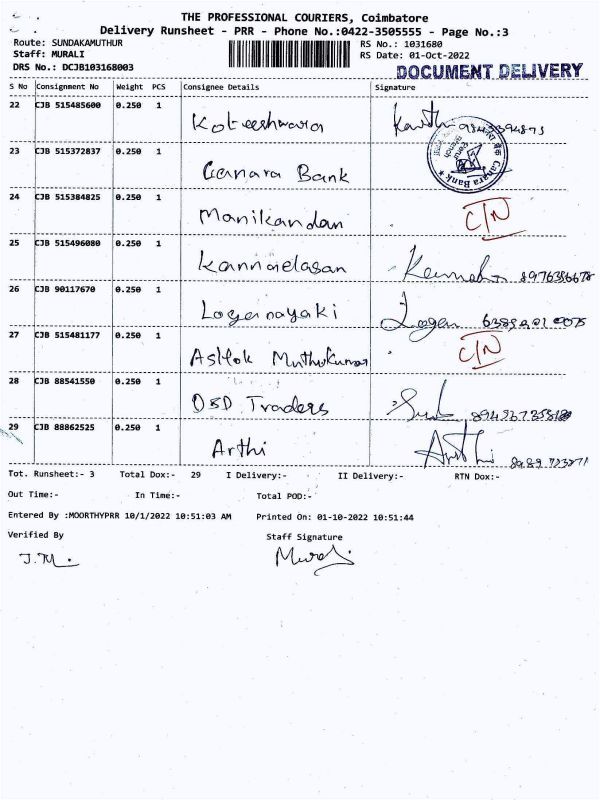 THE PROFESSIONAL COURIERS, Coimbatore
Delivery Runsheet - PRR - Phone No.:0422-3505555 - Page No.:3
Route: SUNDAKAMUTHUR RS No.: 1031680
Staff: MURALI RS Date: 01-Oct-2022
DRS No.: DCJB103168003 DOCUMENT DELIVERY
S No Consignment No Weight PCS Consignee Details Signature
22 CJB 515485600 0.250 1 Koteeshwara
23 CJB 515372837 0.250 1 Canara Bank Canara Bank
24 CJB 515384825 0.250 1 Manikandan C/N
25 CJB 515496080 0.250 1 Kannadasan
26 CJB 90117670 0.250 1 Loganayaki Logan
27 CJB 515481177 0.250 1 Ashok Muthukumar C/N
28 CJB 88541550 0.250 1 DSD Traders
29 CJB 88862525 0.250 1 Arthi Arthi
Tot. Runsheet:- 3 Total Dox:- 29 I Delivery:- II Delivery:- RTN Dox:-
Out Time:- In Time:- Total POD:-
Entered By :MOORTHYPRR 10/1/2022 10:51:03 AM Printed On: 01-10-2022 10:51:44
Verified By Staff Signature
J.M. Murali